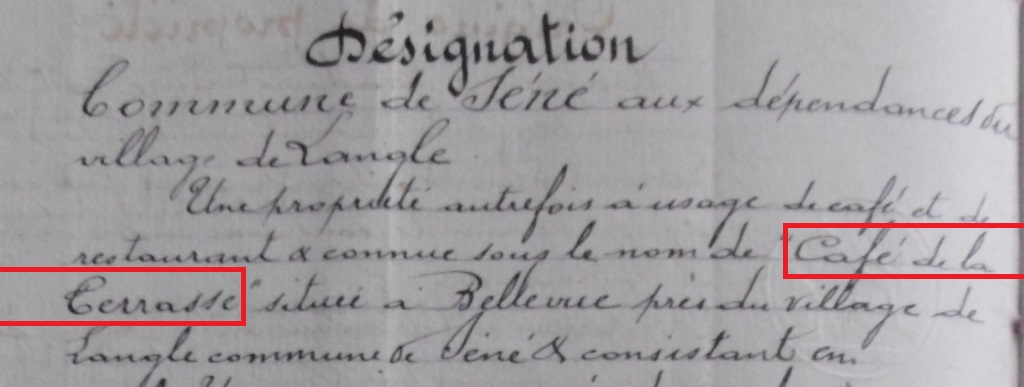 Désignation
Commune de Séné aux dépendances du
village de Langle
Une propriété autrefois à usage de café et de
restaurant & connue sous le nom de "Café de la
Terrasse" située à Bellevue près du village de
Langle commune de Séné & consistant en